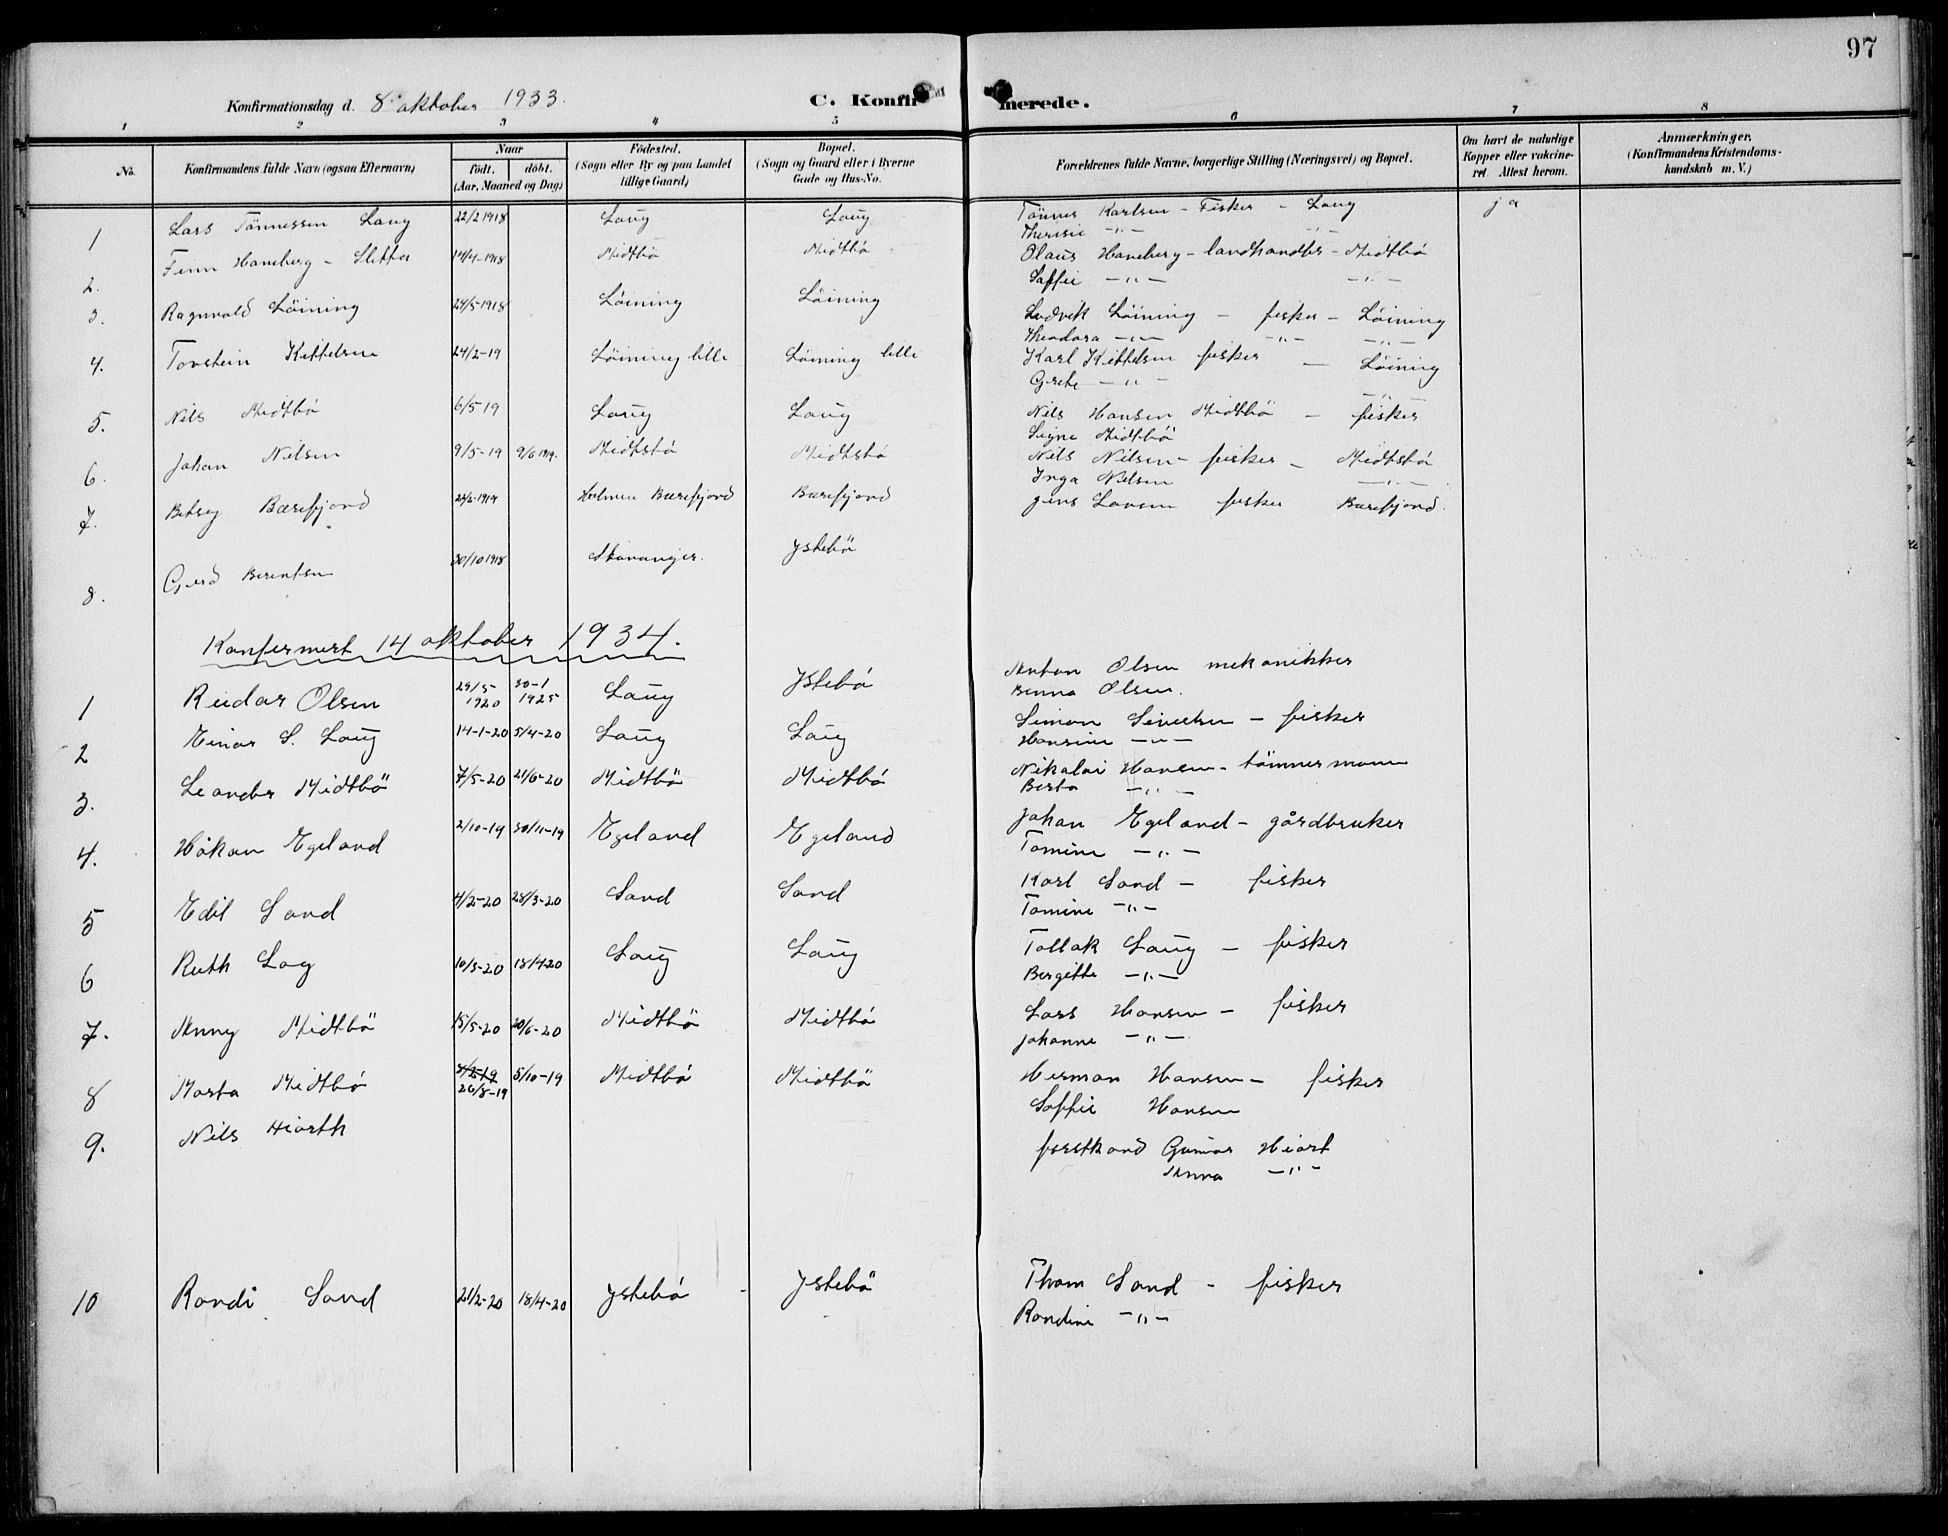 97
Konfirmationsdag d. 8 oktober 1933. C. Konfirmerede.
1 2 3 4 5 6 7 8
No. Konfirmandens fulde Navn (ogsaa Efternavn) Naar födt. döbt. (Aar, Maaned og Dag) Födested. (Sogn eller By og paa Landet tillige Gaard) Bopæl. (Sogn og Gaard eller i Byerne Gade og Hus-No. Forældrenes fulde Navne, borgerlige Stilling (Næringsvei) og Bopæl. Om havt de naturlige Kopper eller vakcineret Attest herom. Anmærkninger. (Konfirmandens Kristendomskundskab m. V.)
1 Lars Tönnessen Laug 22/2 1918 Laug Laug Tönnes Karlsen - Fisker - Laug ja
Theresie - " - - " -
2. Finn Haneberg - 14/4-1918 Midtbö Midtbö Olaus Haneberg - landhandler - Midtbö
Soffie - " - - " -
3. Ragnvald Löining 24/5-1918 Löining Löining Ludvik Löining - fisker - Löining
Theodora - " - - " - - " -
4. Torstein Kittelsen 24/2-19 Löining lille Löining lille Karl Kittelsen fisker - Löining
Grete - " - - " -
5. Nils Midtbö 6/5 19 Laug Laug Nils Hansen Midtbö - fisker
Signe Midtbö
6. Johan Nilsen 9/5-19 9/6 1919. Midtbö Midtbö Nils Nilsen - fisker - Midtbö
Inga Nilsen - " -
7. Betsy Bærefjord 1919 Holmen Bærefjord Bærefjord Jens Larsen fisker Bærefjord.
8. Gerd Berentsen 30/10 1918 Stavanger. Ystebö
Konfermert 14 oktober 1934.
Anton Olsen mekanikker
1 Reidar Olsen 29/5 1920 30-1 1925 Laug Ystebö Benna Olsen.
2 Einar S. Laug 14-1-20 5/4-20 Laug Laug Simon Sivertsen - fisker
Hansine - " -
3. Leander Midtbö 7/5-20 21/6-20 Midtbö Midtbö Nikolai Hansen - tömmermann
Berta - " -
4. Håkon Egeland 2/10-19 30/11-19 Egeland Egeland Johan Egeland - gårdbruker
Tomine - " -
5 Edit Sand 4/2-20 28/3-20 Sand Sand Karl Sand - fisker
Tomine - " -
6 Ruth Log 10/3-20 18/4-20 Laug Laug Tollak Laug - fisker
Bergitte - " -
7. Anny Midtbö 15/5-20 20/6-20 Midtbö Midtbö Lars Hansen - fisker
Johanne - " -
8 Marta Midtbö 26/8-19 5/10-19 Midtbö Midtbö Herman Hansen - fisker
Soffie Hansen
9. Nils Hiorth forstkand Gunnar Hiort
Anna - " -
10 Randi Sand 21/2-20 18/4-20 Ystebö - Ystebö Thom Sand - fisker
Randine - " -